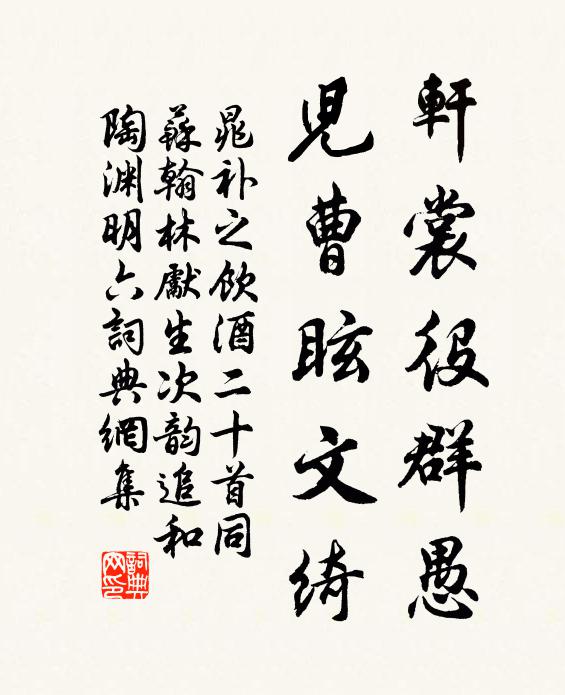 軒裳役群愚
児曹眩文綺
晁补之飲酒二十首同
蘇翰林獻生次韵追和
陶渊明六詞典網集
詞典网印